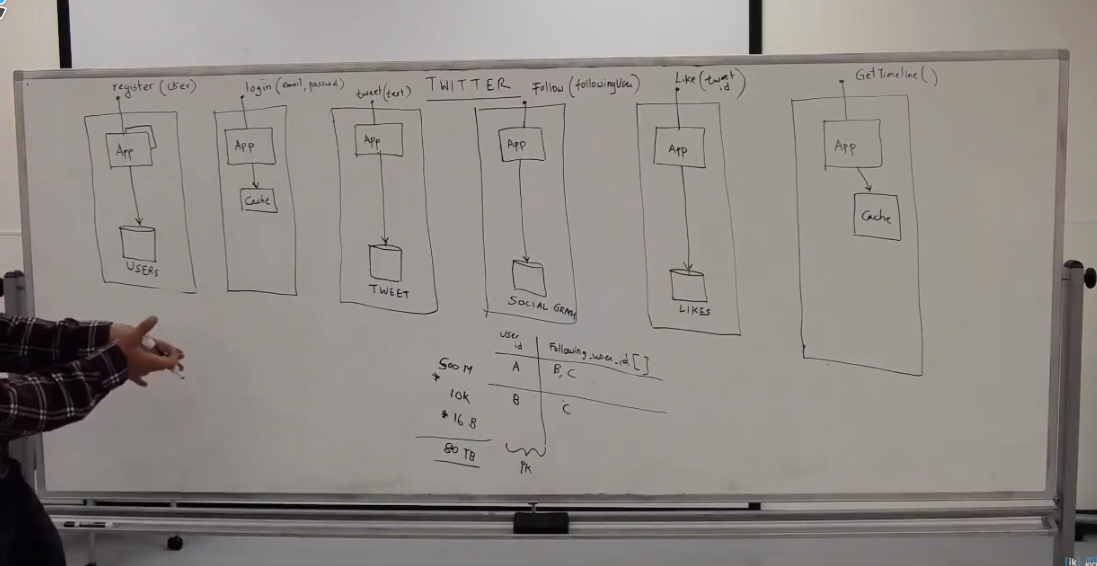 TWITTER
register (user)
App
USERS
login (email, passwd)
App
Cache
tweet (text)
App
TWEET
Follow (followingUser)
App
SOCIAL GRAPH
Like (tweet
id)
App
LIKES
GetTimeline()
App
Cache
500 M
* 10K
* 16 B
80 TB
User
id
Following_user_id []
A
B, C
B
C
PK
[ik]